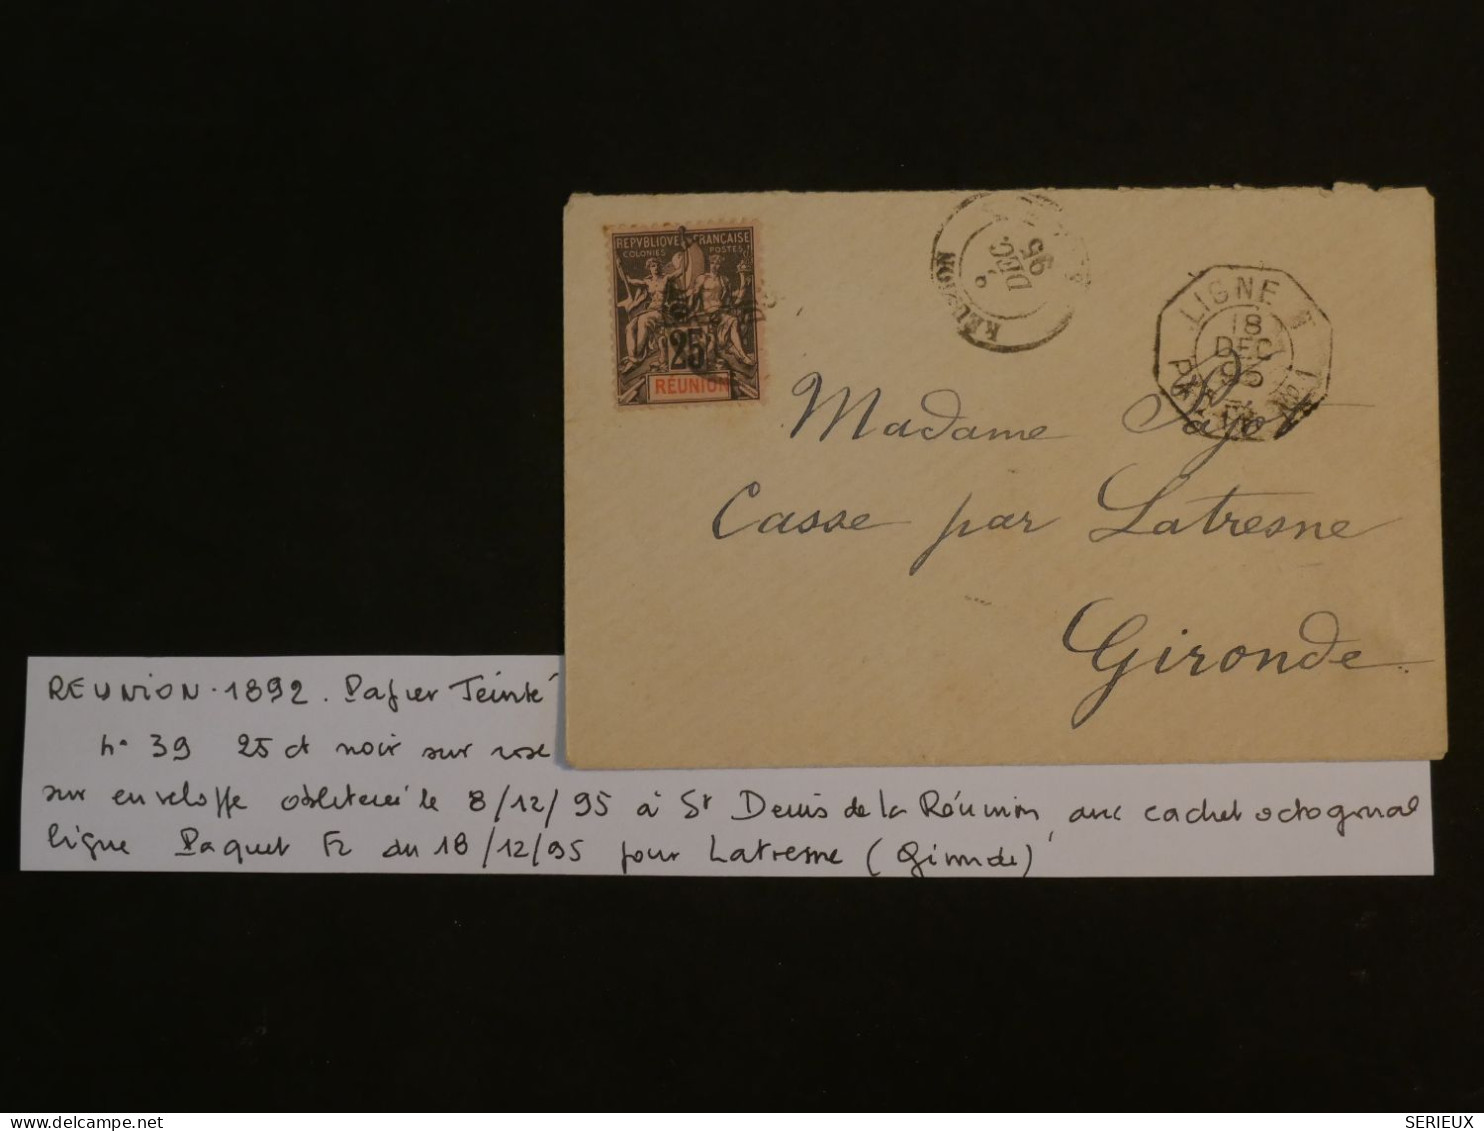 REPVBLIQVE FRANÇAISE
COLONIES POSTES
25
RÉUNION
DEC.
95
REUNION
LIGNE T
18
DEC
95
PAQ. FR. Nº 1
Madame
Casse par Latresne
Gironde
REUNION. 1892. Papier Teinté
n° 39 25 ct noir sur rose
sur enveloppe obliteré le 8/12/95 à St Denis de la Réunion, avec cachet octogonal
ligne Paquet Fr du 18/12/95 pour Latresne (Gironde)
SERIEUX